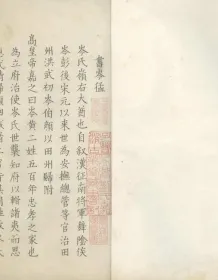 書岑猛
岑氏嶺右大酋也自叙漢征南將軍舞陰侯
岑彭後宋元以來世為安撫總管等官治田
州洪武初岑伯顏以田州歸附
高皇帝嘉之曰岑黃二姓五百年忠孝之家也
為立府治使岑氏世襲知府以輯諸夷而思